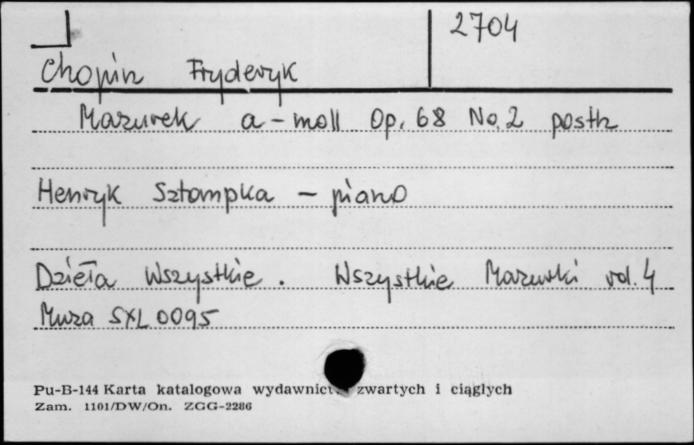 2704
Chopin Fryderyk
Mazurek a-moll Op. 68 No. 2 posth
Henryk Sztompka – piano
Dzieła Wszystkie. Wszystkie Mazurki vol. 4
Muza SXL 0095
Pu-B-144 Karta katalogowa wydawnictw zwartych i ciągłych
Zam. 1101/DW/On. ZGG-2286